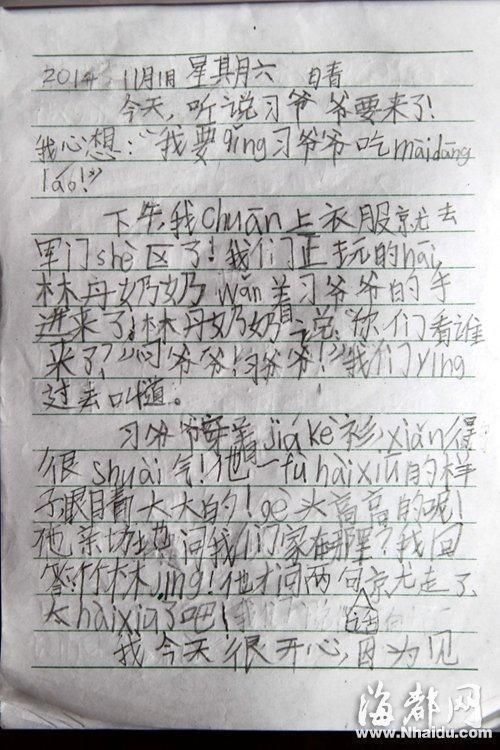 2014 11月1日 星其月六 日青
今天，听说习爷爷要来了！
我心想：“我要qǐng习爷爷吃màidāng
láo！”
下午，我chuān上衣服就去
军门shè区了！我们正玩的hāi，
林丹奶奶wǎn着习爷爷的手
进来了，林丹奶奶说“你们看谁
来了？”“习爷爷！习爷爷！”我们yíng
过去叫道。
习爷爷穿着jiákè衫，xiǎn得
很shuài气！他一fù hàixiū的样
子眼睛大大的！gè头高高的呢！
他亲切地问我们家在哪里？我回
答：竹林jìng！他才问两句就走了
太hàixiū了吧！
话
我今天很开心，因为见
海都网
www.Nhaidu.com